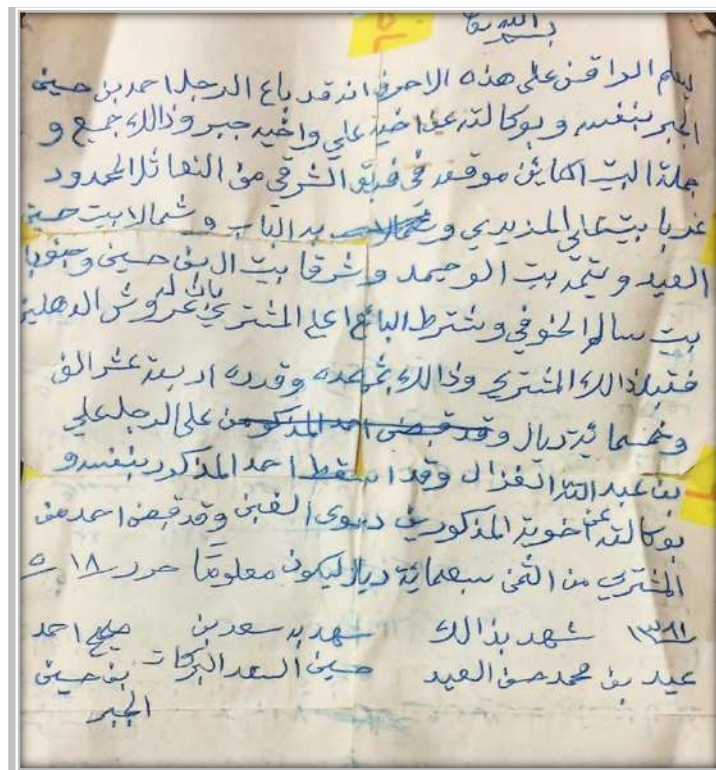 بسم الله تعا
يعلم الواقف على هذه الاحرف انه قد باع الرجل احمد بن حسين
الجبر بنفسه وبوكالته عن اخيه علي واخيه جبر وذالك جميع و
جملة البيت الكاين موقعه في فريق الشرقي من النعاثل المحدود
غربا بيت علي المزيدي و به الباب وشمالا بيت حسين
العيد ويتمه بيت الوحيمد وشرقا بيت ال بن حسين وجنوبا
بيت سالم الخوفي وشترط البائع اعلا المشتري بان له عروش الدهليز
فقبل ذالك المشتري وذالك بثمن وقدره اربعة عشر الف
وخمسمائة ريال وقد قبض احمد المذكور من على الرجل علي
بن عبد الله الغزال وقد اسقط احمد المذكور بنفسه و
بوكالته عن اخوية المذكورين دعوى الغبن وقد قبض احمد من
المشتري من الثمن سبعمائة ريال ليكون معلوما حرر ١٨ ٥
شهد بذالك شهد به سعد بن صحيح احمد
عيد بن محمد حسن العيد حسين السعد البركات بن حسين
الجبر